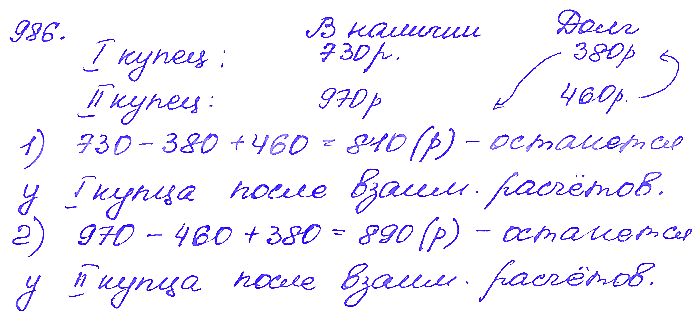 986. В наличии Долг
I купец: 730р. 380р
II купец: 970р 460р.
1) 730 - 380 + 460 = 810 (р) - останется
у I купца после взаим. расчётов.
2) 970 - 460 + 380 = 890 (р) - останется
у II купца после взаим. расчётов.